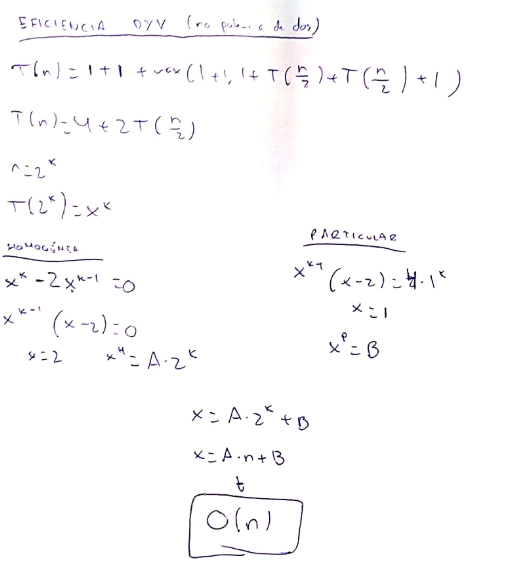 EFICIENCIA DYV (no de dos)
T(n) = 1+1 + max(1+1, 1+T(n/2)+T(n/2)+1)
T(n)=4+2T(n/2)
n=2^k
T(2^k)=x^k
HOMOGÉNEA
x^k-2x^{k-1}=0
x^{k-1}(x-2)=0
x=2 x^H=A·2^k
PARTICULAR
x^{k-1}(x-2)=4·1^k
x=1
x^P=B
x=A·2^k+B
x=A·n+B
O(n)